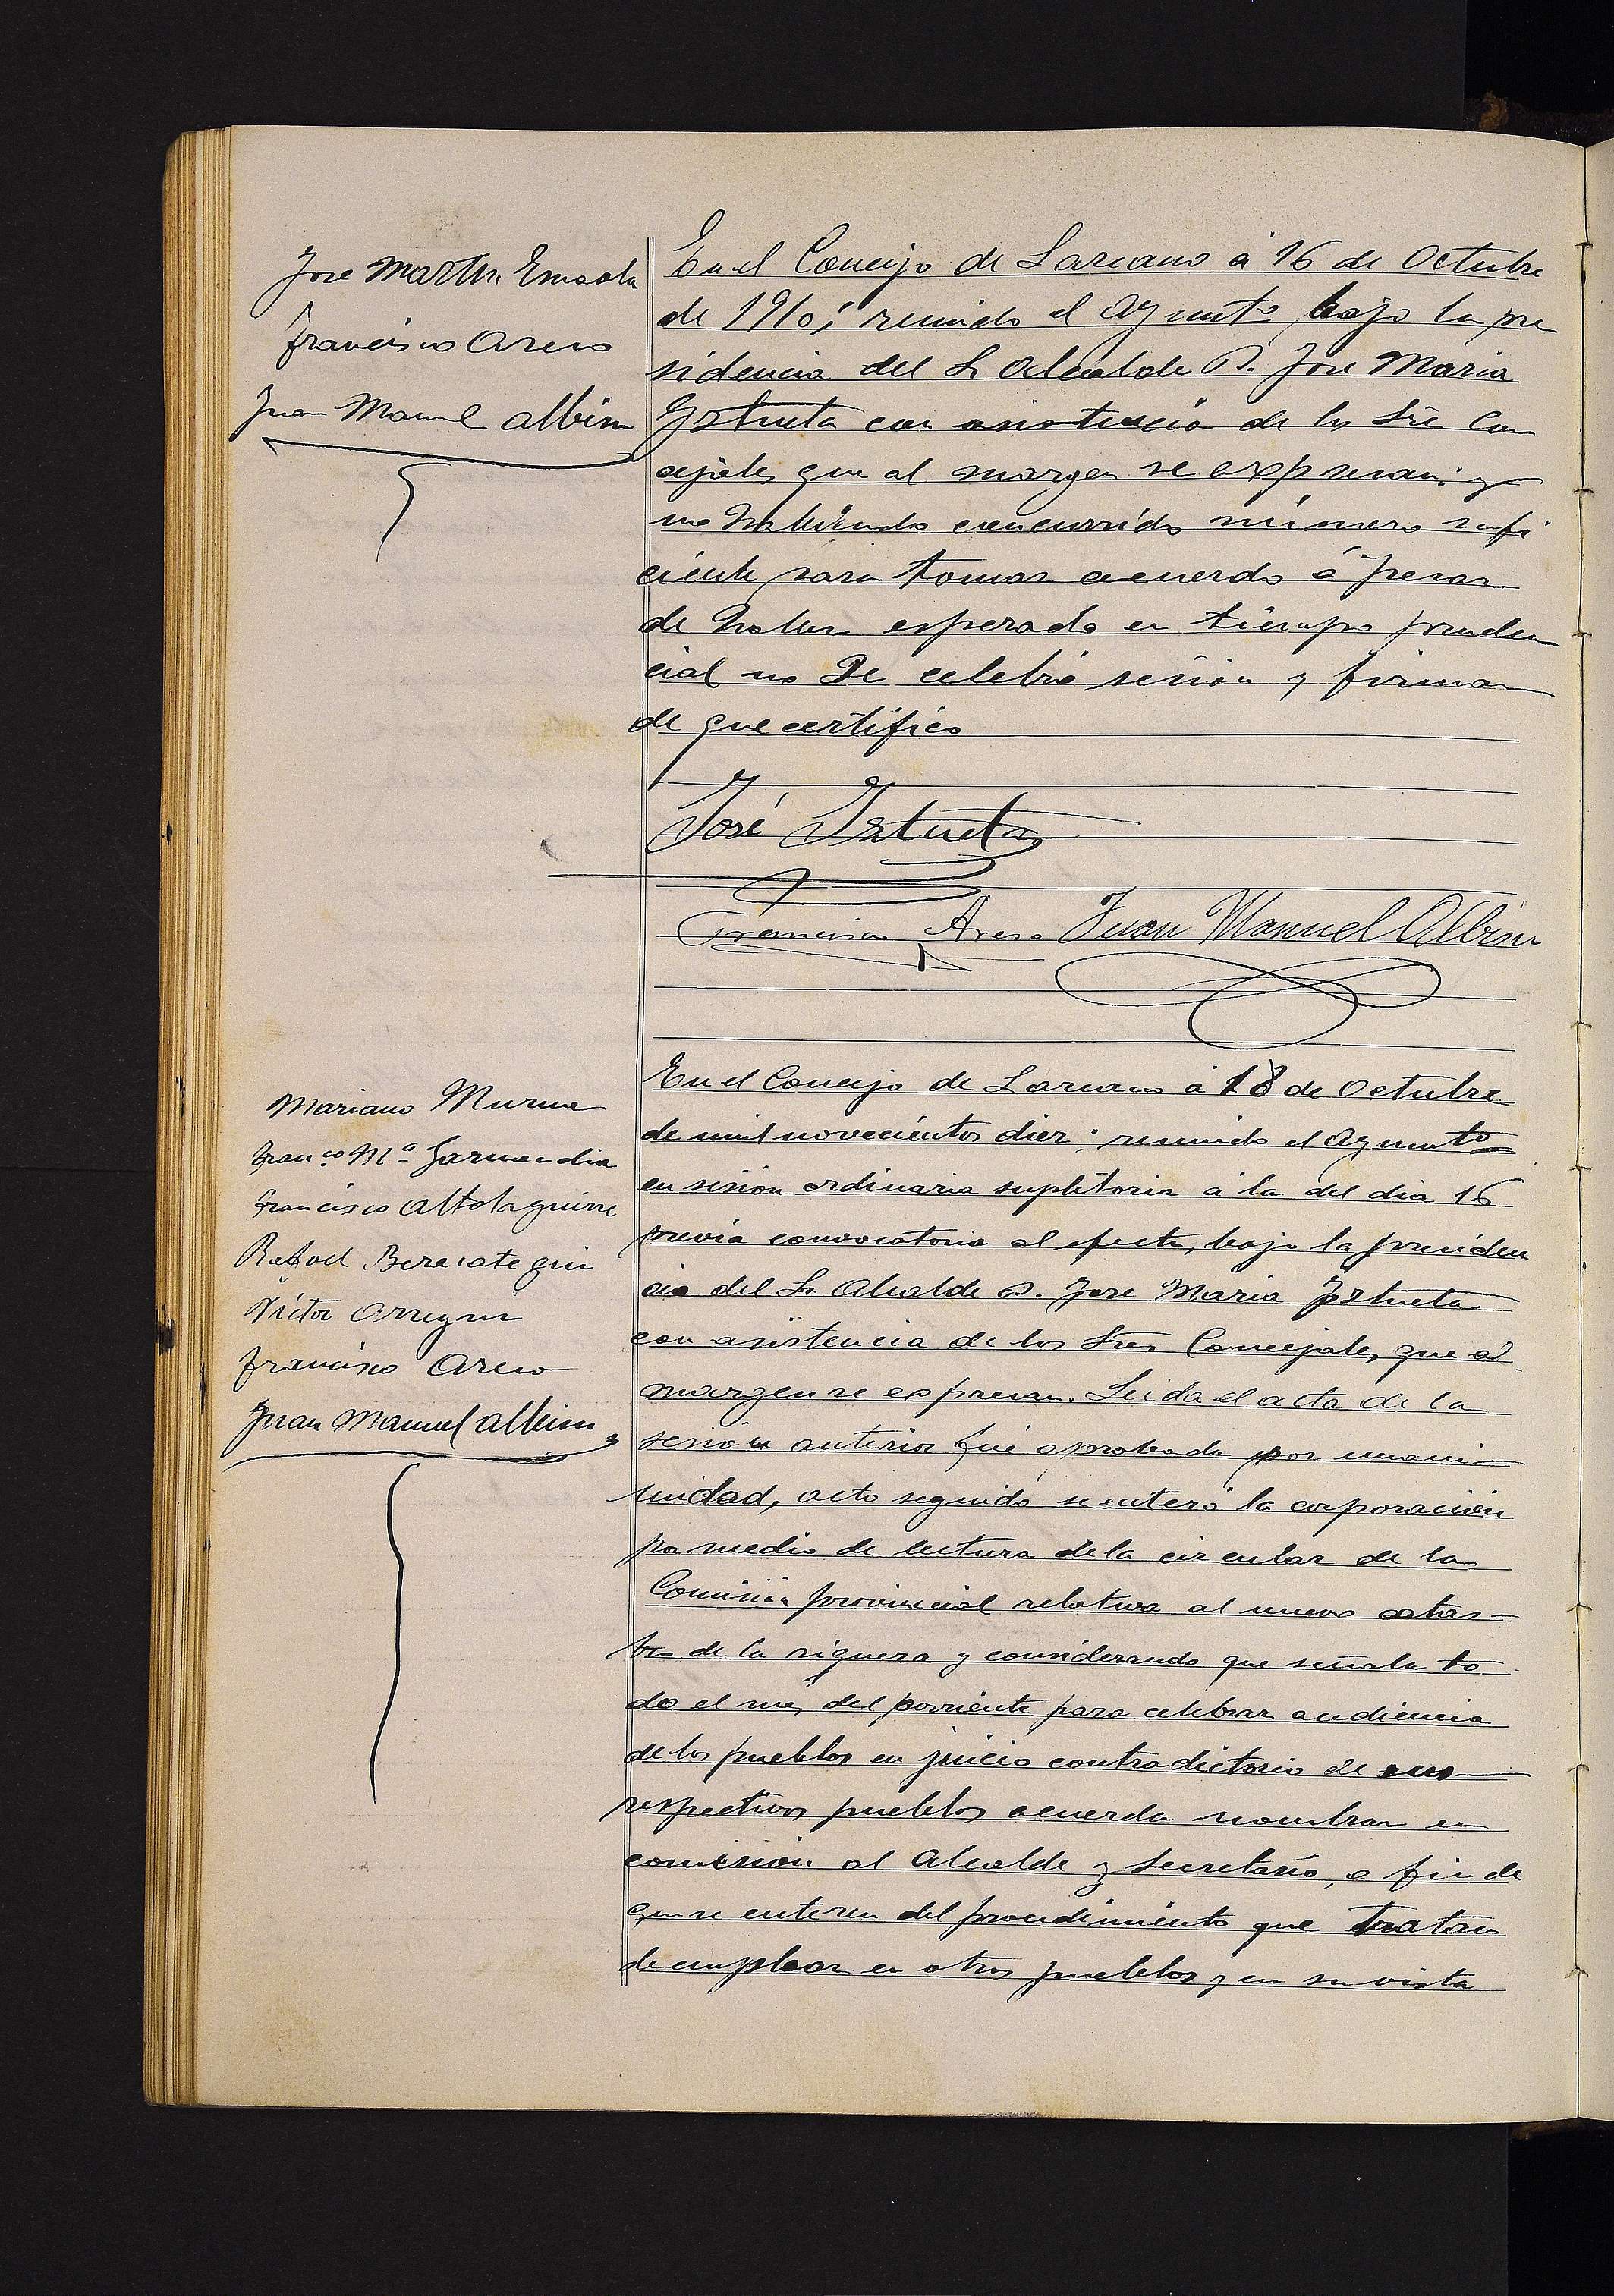 Jose Martin
Francisco Areso
Juan Manuel Albisu
En el Concejo de Lazcano á 16 de Octubre
de 1910; reunido el Ayunto bajo la pre
sidencia del Sr Alcalde D. Jose Maria
Yztueta con asistencia de los Sres Con
cejales que al margen se expresan: y
no habiendo concurrido número sufi
ciente para tomar acuerdo á pesar
de haber esperado en tiempo pruden
cial no se celebró sesión y firman
de que certifico
José Yztueta
Francisco Areso Juan Manuel Albisu
Mariano Murua
Franco Ma Garmendia
Francisco Altolaguirre
Rafael Bereciategui
Victor Arregui
Francisco Areso
Juan Manuel Albisu
En el Concejo de Lazcano á 18 de Octubre
de mil novecientos diez; reunido el Ayunto
en sesión ordinaria supletoria á la del dia 16
previa convocatoria al efecto, bajo la presiden
cia del Sr Alcalde D. Jose Maria Yztueta
con asistencia de los Sres Concejales que al
margen se expresan. Leida el acta de la
sesión anterior fué aprobada por unani
midad, acto seguido se enteró la corporación
por medio de lectura de la circular de la
Comisión provincial relativa al nuevo catas-
tro de la riqueza y considerando que señala to
do el mes del corriente para celebrar audiencia
de los pueblos en juicio contradictorio de sus
respectivos pueblos acuerda nombrar en
comisión al Alcalde y Secretario, a fin de
que se enteren del procedimiento que tratan
de emplear en otros pueblos y en su vista